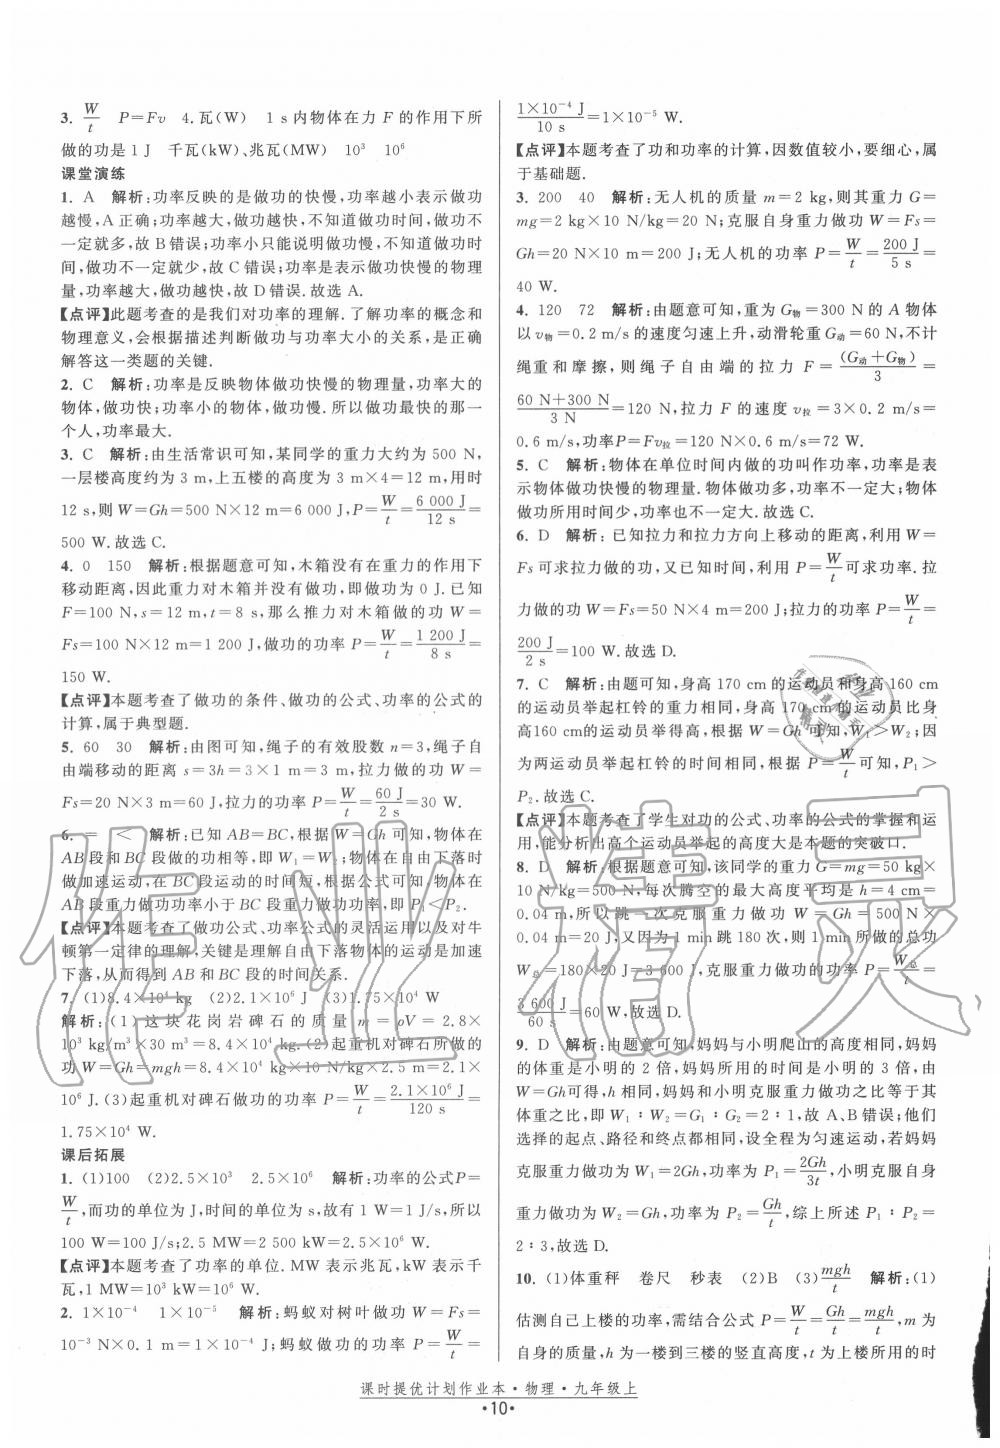 3. W/t　P=Fv　4.瓦(W)　1 s内物体在力F的作用下所
做的功是1 J　千瓦(kW)、兆瓦(MW)　10³　10⁶
课堂演练
1. A　解析:功率反映的是做功的快慢,功率越小表示做功
越慢,A正确;功率越大,做功越快,不知道做功时间,做功不
一定就多,故B错误;功率小只能说明做功慢,不知道做功时
间,做功不一定就少,故C错误;功率是表示做功快慢的物理
量,功率越大,做功越快,故D错误.故选A.
【点评】此题考查的是我们对功率的理解.了解功率的概念和
物理意义,会根据描述判断做功与功率大小的关系,是正确
解答这一类题的关键.
2. C　解析:功率是反映物体做功快慢的物理量,功率大的
物体,做功快;功率小的物体,做功慢.所以做功最快的那一
个人,功率最大.
3. C　解析:由生活常识可知,某同学的重力大约为500 N,
一层楼高度约为3 m,上五楼的高度为3 m×4=12 m,用时
12 s,则W=Gh=500 N×12 m=6 000 J,P=W/t=6 000 J/12 s=
500 W.故选C.
4. 0　150　解析:根据题意可知,木箱没有在重力的作用下
移动距离,因此重力对木箱并没有做功,即做功为0 J.已知
F=100 N,s=12 m,t=8 s,那么推力对木箱做的功W=
Fs=100 N×12 m=1 200 J,做功的功率P=W/t=1 200 J/8 s=
150 W.
【点评】本题考查了做功的条件、做功的公式、功率的公式的
计算,属于典型题.
5. 60　30　解析:由图可知,绳子的有效股数n=3,绳子自
由端移动的距离s=3h=3×1 m=3 m,拉力做的功W=
Fs=20 N×3 m=60 J,拉力的功率P=W/t=60 J/2 s=30 W.
6. =　<　解析:已知AB=BC,根据W=Gh可知,物体在
AB段和BC段做的功相等,即W₁=W₂;物体在自由下落时
做加速运动,在BC段运动的时间短,根据公式可知,物体在
AB段重力做功功率小于BC段重力做功功率,即P₁<P₂.
【点评】本题考查了做功公式、功率公式的灵活运用以及对牛
顿第一定律的理解,关键是理解自由下落物体的运动是加速
下落,从而得到AB和BC段的时间关系.
7. (1)8.4×10⁴ kg　(2)2.1×10⁶ J　(3)1.75×10⁴ W
解析:(1)这块花岗岩碑石的质量m=ρV=2.8×
10³ kg/m³×30 m³=8.4×10⁴ kg.(2)起重机对碑石所做的
功W=Gh=mgh=8.4×10⁴ kg×10 N/kg×2.5 m=2.1×
10⁶ J.(3)起重机对碑石做功的功率P=W/t=2.1×10⁶ J/120 s=
1.75×10⁴ W.
课后拓展
1. (1)100　(2)2.5×10³　2.5×10⁶　解析:功率的公式P=
W/t,而功的单位为J,时间的单位为s,故有1 W=1 J/s,所以
100 W=100 J/s;2.5 MW=2 500 kW=2.5×10⁶ W.
【点评】本题考查了功率的单位.MW表示兆瓦,kW表示千
瓦,1 MW=10³ kW=10⁶ W.
2. 1×10⁻⁴　1×10⁻⁵　解析:蚂蚁对树叶做功W=Fs=
10⁻³ N×0.1 m=1×10⁻⁴ J;蚂蚁做功的功率P=W/t=
1×10⁻⁴ J/10 s=1×10⁻⁵ W.
【点评】本题考查了功和功率的计算,因数值较小,要细心,属
于基础题.
3. 200　40　解析:无人机的质量m=2 kg,则其重力G=
mg=2 kg×10 N/kg=20 N;克服自身重力做功W=Fs=
Gh=20 N×10 m=200 J;无人机的功率P=W/t=200 J/5 s=
40 W.
4. 120　72　解析:由题意可知,重为G物=300 N的A物体
以v物=0.2 m/s的速度匀速上升,动滑轮重G动=60 N,不计
绳重和摩擦,则绳子自由端的拉力F=(G动+G物)/3=
60 N+300 N/3 N=120 N,拉力F的速度v拉=3×0.2 m/s=
0.6 m/s,功率P=Fv拉=120 N×0.6 m/s=72 W.
5. C　解析:物体在单位时间内做的功叫作功率,功率是表
示物体做功快慢的物理量.物体做功多,功率不一定大,物体
做功所用时间少,功率也不一定大.故选C.
6. D　解析:已知拉力和拉力方向上移动的距离,利用W=
Fs可求拉力做的功,又已知做功时间,利用P=W/t可求功率.拉
力做的功W=Fs=50 N×4 m=200 J;拉力的功率P=W/t=
200 J/2 s=100 W.故选D.
7. C　解析:由题可知,身高170 cm的运动员和身高160 cm
的运动员举起杠铃的重力相同,身高170 cm的运动员比身
高160 cm的运动员举得高,根据W=Gh可知,W₁>W₂;因
为两运动员举起杠铃的时间相同,根据P=W/t可知,P₁>
P₂.故选C.
【点评】本题考查了学生对功的公式、功率的公式的掌握和运
用,能分析出高个运动员举起的高度大是本题的突破口.
8. D　解析:根据题意可知,该同学的重力G=mg=50 kg×
10 N/kg=500 N,每次腾空的最大高度平均是h=4 cm=
0.04 m,所以跳一次克服重力做功W=Gh=500 N×
0.04 m=20 J,又因为1 min跳180次,则1 min所做的总功
W总=180×20 J=3 600 J,克服重力做功的功率P=W总/t=
3 600 J/60 s=60 W,故选D.
9. D　解析:由题意可知,妈妈与小明爬山的高度相同,妈妈
的体重是小明的2倍,妈妈所用的时间是小明的3倍.由W
=Gh可得,h相同,妈妈和小明克服重力做功之比等于其
体重之比,即W₁∶W₂=G₁∶G₂=2∶1,故A、B错误;他们
选择的起点、路径和终点都相同,设全程为匀速运动,若妈妈
克服重力做功为W₁=2Gh,功率为P₁=2Gh/3t,小明克服自身
重力做功为W₂=Gh,功率为P₂=Gh/t,综上所述P₁∶P₂=
2∶3,故选D.
10. (1)体重秤　卷尺　秒表　(2)B　(3)mgh/t　解析:(1)
估测自己上楼的功率,需结合公式P=W/t=Gh/t=mgh/t,m为
自身的质量,h为一楼到三楼的竖直高度,t为上楼所用的时
课时提优计划作业本·物理·九年级上
·10·
作业精灵